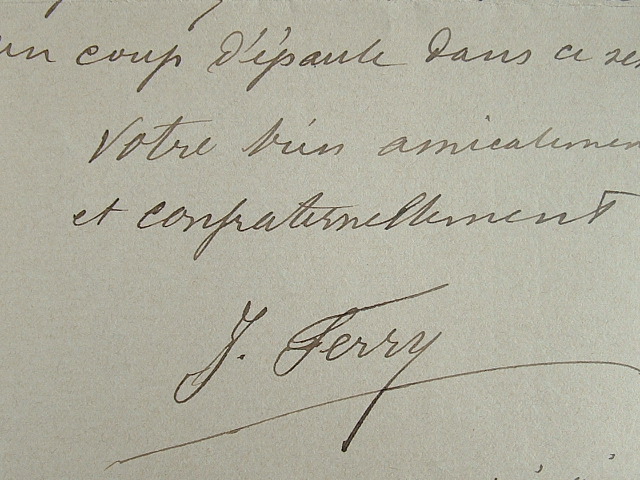 un coup d'épaule dans ce sens
Votre bien amicalement
et confraternellement
J. Ferry